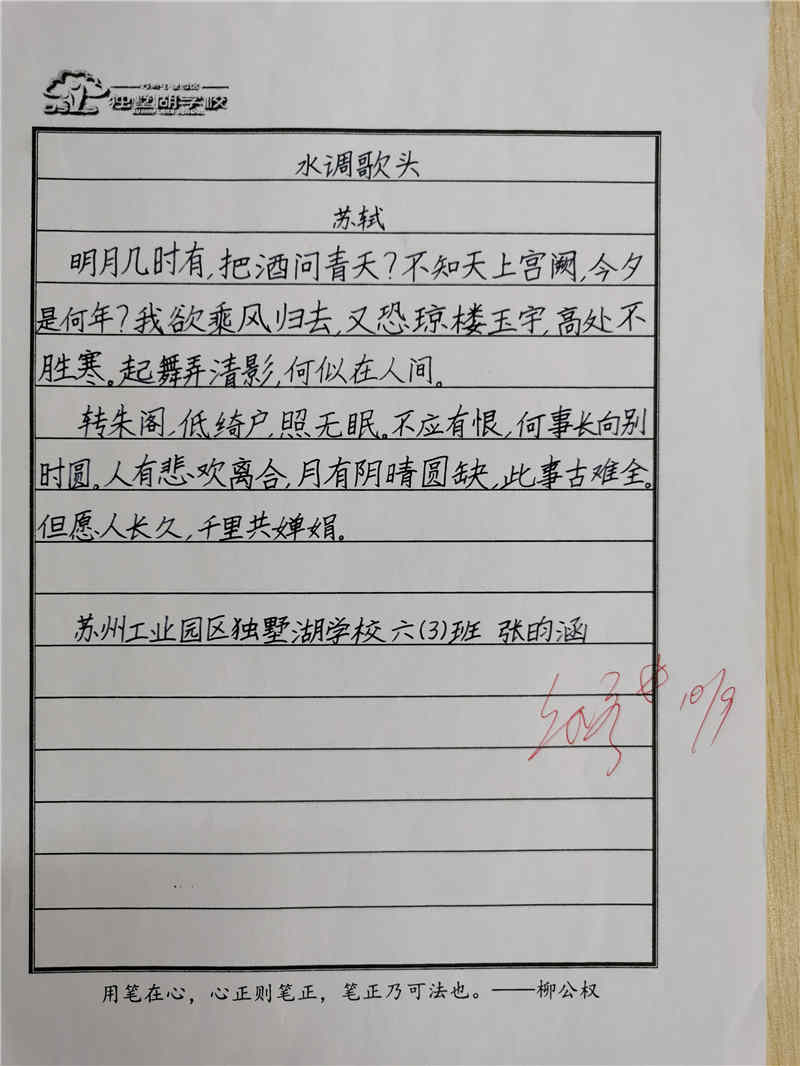 独墅湖学校
水调歌头
苏轼
明月几时有,把酒问青天?不知天上宫阙,今夕
是何年?我欲乘风归去,又恐琼楼玉宇,高处不
胜寒。起舞弄清影,何似在人间。
转朱阁,低绮户,照无眠。不应有恨,何事长向别
时圆。人有悲欢离合,月有阴晴圆缺,此事古难全。
但愿人长久,千里共婵娟。
苏州工业园区独墅湖学校六(3)班 张昀涵
10/9
用笔在心,心正则笔正,笔正乃可法也。——柳公权